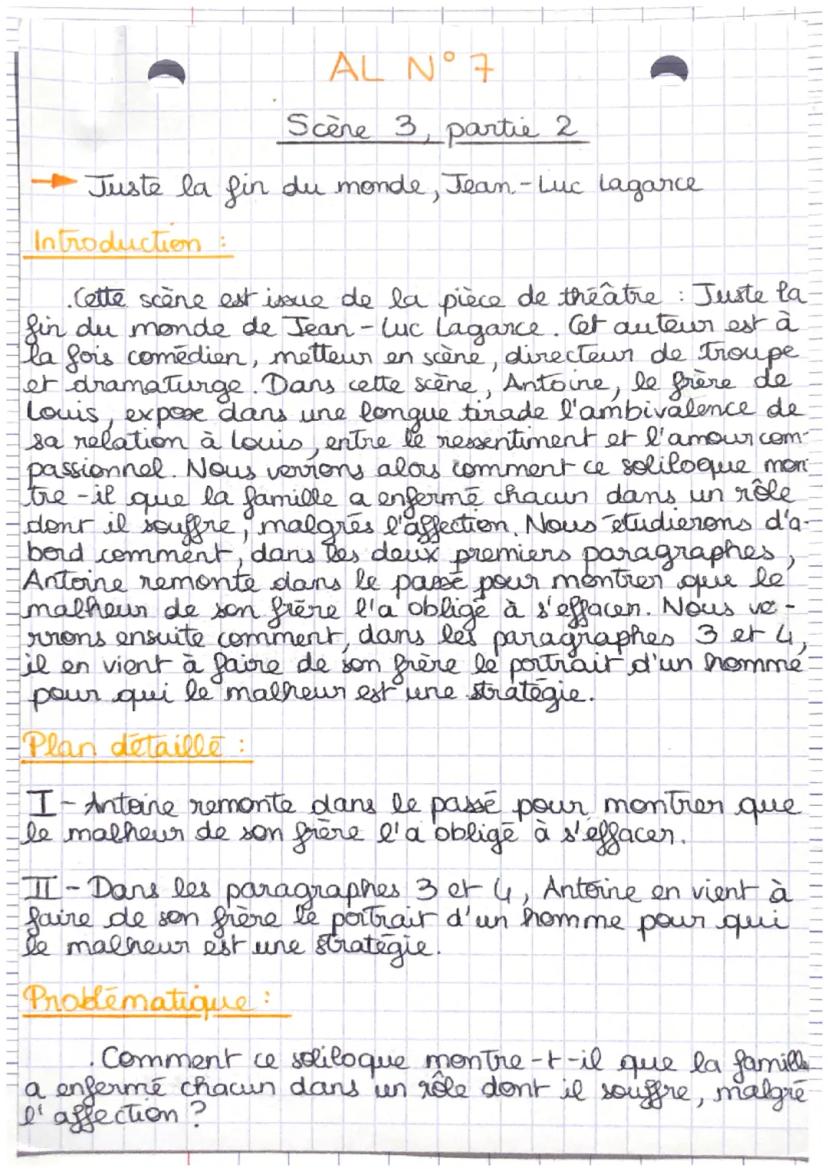 AL N°7
Scène 3, partie 2
→ Juste la fin du monde, Jean-Luc Lagarce
Introduction :
. Cette scène est issue de la pièce de théâtre : Juste la
fin du monde de Jean-Luc Lagarce. Cet auteur est à
la fois comédien, metteur en scène, directeur de troupe
et dramaturge. Dans cette scène, Antoine, le frère de
Louis, expose dans une longue tirade l'ambivalence de
sa relation à Louis, entre le ressentiment et l'amour com-
passionnel. Nous verrons alors comment ce soliloque mon-
tre-il que la famille a enfermé chacun dans un rôle
dont il souffre, malgrés l'affection. Nous étudierons d'a-
bord comment, dans les deux premiers paragraphes,
Antoine remonte dans le passé pour montrer que le
malheur de son frère l'a obligé à s'effacer. Nous ve-
rrons ensuite comment, dans les paragraphes 3 et 4,
il en vient à faire de son frère le portrait d'un homme
pour qui le malheur est une stratégie.
Plan détaillé :
I - Antoine remonte dans le passé pour montrer que
le malheur de son frère l'a obligé à s'effacer.
II - Dans les paragraphes 3 et 4, Antoine en vient à
faire de son frère le portrait d'un homme pour qui
le malheur est une stratégie.
Problématique :
. Comment ce soliloque montre-t-il que la famille
a enfermé chacun dans un rôle dont il souffre, malgré
l'affection ?